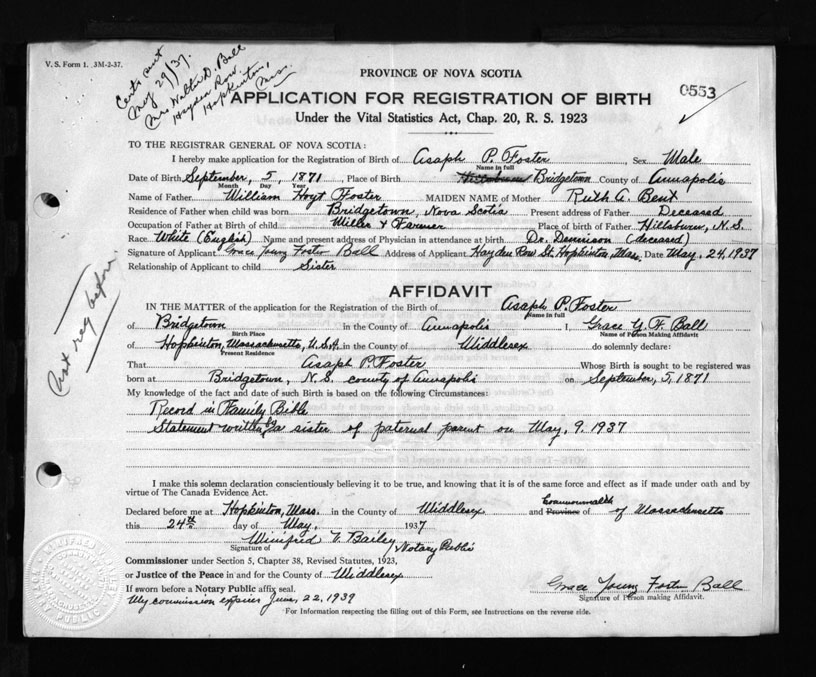 V. S. Form 1. 3M-2-37.
Certs sent
May 29/37.
Mrs Walter D. Ball
Hayden Row.
Hopkinton,
Mass.
PROVINCE OF NOVA SCOTIA
0553
APPLICATION FOR REGISTRATION OF BIRTH
Under the Vital Statistics Act, Chap. 20, R. S. 1923
TO THE REGISTRAR GENERAL OF NOVA SCOTIA:
I hereby make application for the Registration of Birth of Asaph P. Foster Sex Male
Name in full
Date of Birth September, 5, 1871 Place of Birth Bridgetown County of Annapolis
Month Day Year
Name of Father William Hoyt Foster MAIDEN NAME of Mother Ruth A. Bent
Residence of Father when child was born Bridgetown, Nova Scotia Present address of Father Deceased
Occupation of Father at Birth of child Miller & Farmer Place of birth of Father Hillsburn, N.S.
Race White (English) Name and present address of Physician in attendance at birth Dr. Dennison (deceased)
Signature of Applicant Grace Young Foster Ball Address of Applicant Hayden Row St. Hopkinton, Mass. Date May, 24, 1937
Relationship of Applicant to child Sister
Not reg before.
AFFIDAVIT
IN THE MATTER of the application for the Registration of the Birth of Asaph P. Foster
Name in full
of Bridgetown in the County of Annapolis I, Grace Y. F. Ball
Birth Place Name of Person Making Affidavit
of Hopkinton, Massachusetts, U.S.A. in the County of Middlesex do solemnly declare:
Present Residence
That Asaph P. Foster Whose Birth is sought to be registered was
born at Bridgetown, N.S. county of Annapolis on September, 5, 1871
My knowledge of the fact and date of such Birth is based on the following Circumstances:
Record in Family Bible
Statement written by a sister of paternal parent on May, 9. 1937
I make this solemn declaration conscientiously believing it to be true, and knowing that it is of the same force and effect as if made under oath and by
virtue of The Canada Evidence Act.
Commonwealth
Declared before me at Hopkinton, Mass. in the County of Middlesex and Province of of Massachusetts
this 24th day of May, 1937
Winifred V. Bailey / Notary Public
Signature of
Commissioner under Section 5, Chapter 38, Revised Statutes, 1923,
or Justice of the Peace in and for the County of Middlesex
If sworn before a Notary Public affix seal.
My commission expires June, 22, 1939
Grace Young Foster Ball
Signature of Person making Affidavit.
For Information respecting the filling out of this Form, see Instructions on the reverse side.